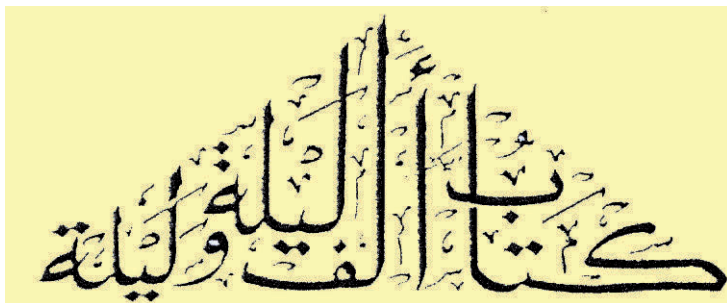 كتاب ألف ليلة وليلة